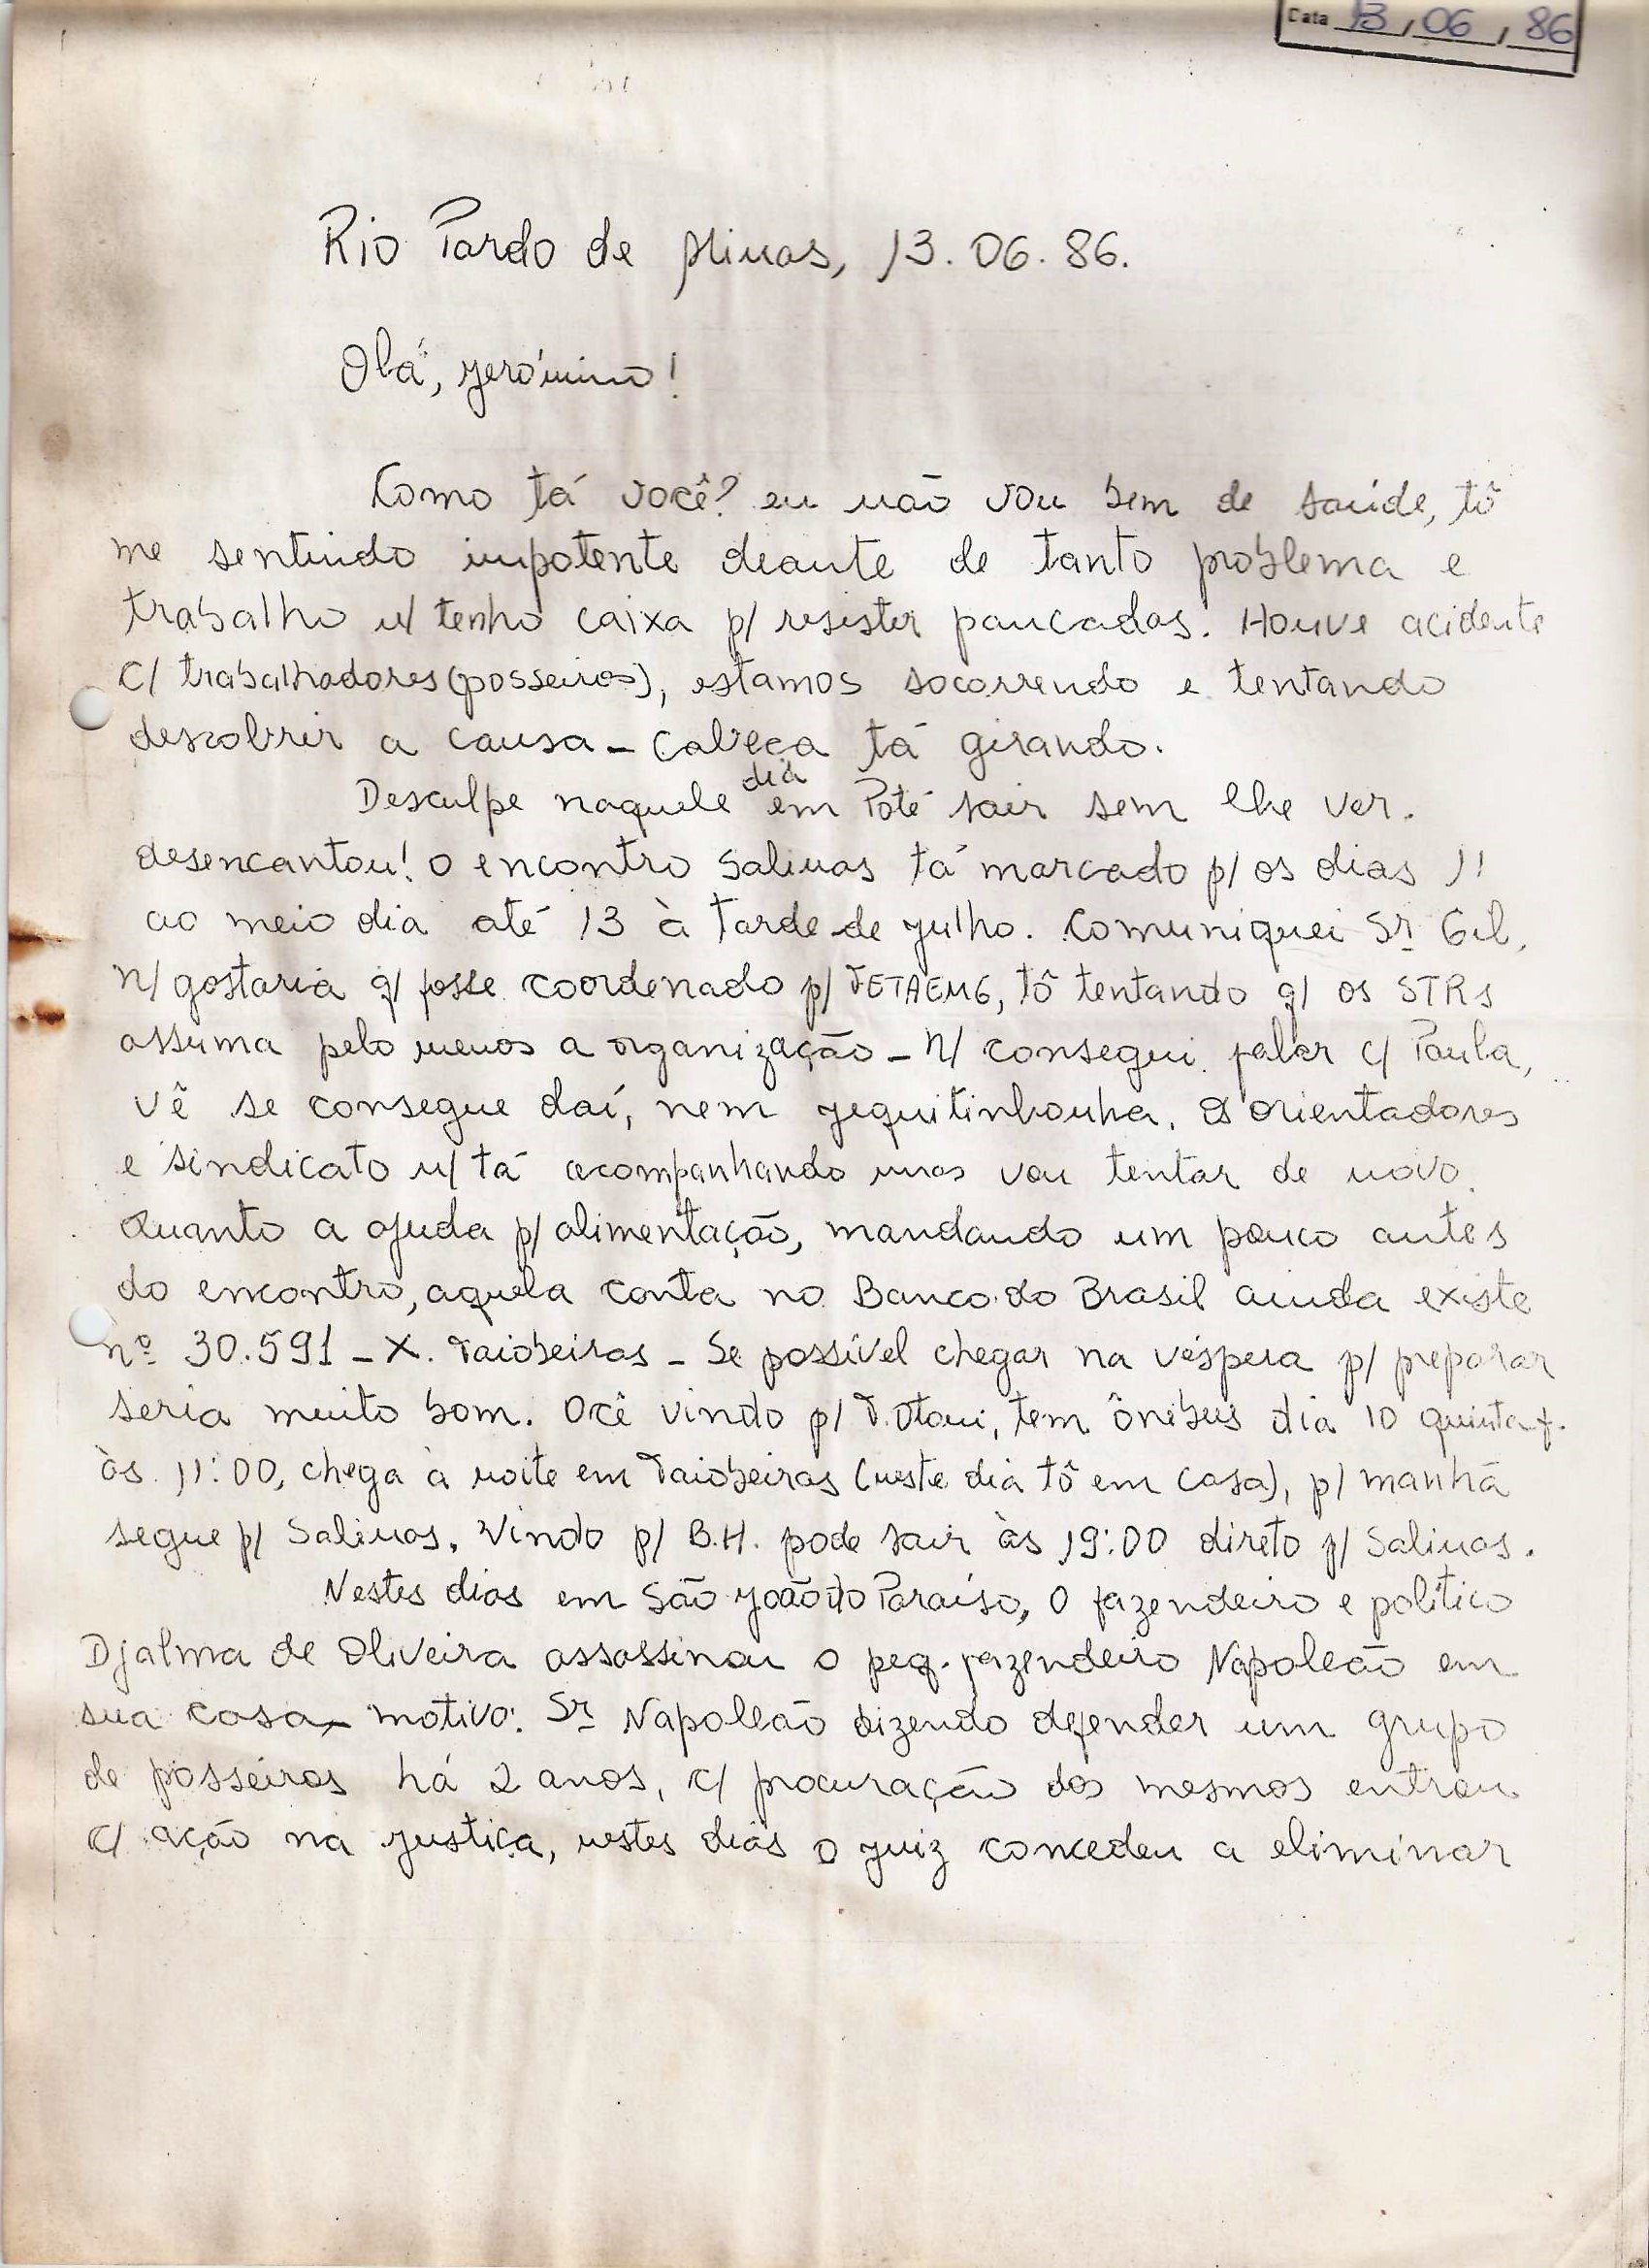 Data 13 / 06 / 86
Rio Pardo de Minas, 13.06.86.
Olá, Jerônimo!
Como tá você? eu não vou bem de saúde, tô
me sentindo impotente deante de tanto problema e
trabalho n/ tenho caixa p/ resistir pancadas. Houve acidente
c/ trabalhadores (posseiros), estamos socorrendo e tentando
descobrir a causa - Cabeça tá girando.
Desculpe naquele dia em Poté sair sem lhe ver.
desencantou! o encontro Salinas tá marcado p/ os dias 11
ao meio dia até 13 à tarde de julho. Comuniquei Sr Gil,
n/ gostaria q/ fosse coordenado p/ FETAEMG, tô tentando q/ os STRs
assuma pelo menos a organização - N/ consegui falar c/ Paula,
vê se consegue daí, nem Jequitinhonha. Os orientadores
e sindicato n/ tá acompanhando mas vou tentar de novo.
Quanto a ajuda p/ alimentação, mandando um pouco antes
do encontro, aquela conta no Banco do Brasil ainda existe
nº 30.591 - X. Taiobeiras - Se possível chegar na véspera p/ preparar
seria muito bom. Ocê vindo p/ T. Otoni, tem ônibus dia 10 quinta f.
às 11:00, chega à noite em Taiobeiras (neste dia tô em casa), p/ manhã
segue p/ Salinas. Vindo p/ B.H. pode sair às 19:00 direto p/ Salinas.
Nestes dias em São João do Paraíso, o fazendeiro e político
Djalma de Oliveira assassinou o peq. fazendeiro Napoleão em
sua casa - motivo: Sr Napoleão dizendo defender um grupo
de posseiros há 2 anos, c/ procuração dos mesmos entrou
c/ ação na justiça, nestes dias o juiz concedeu a eliminar